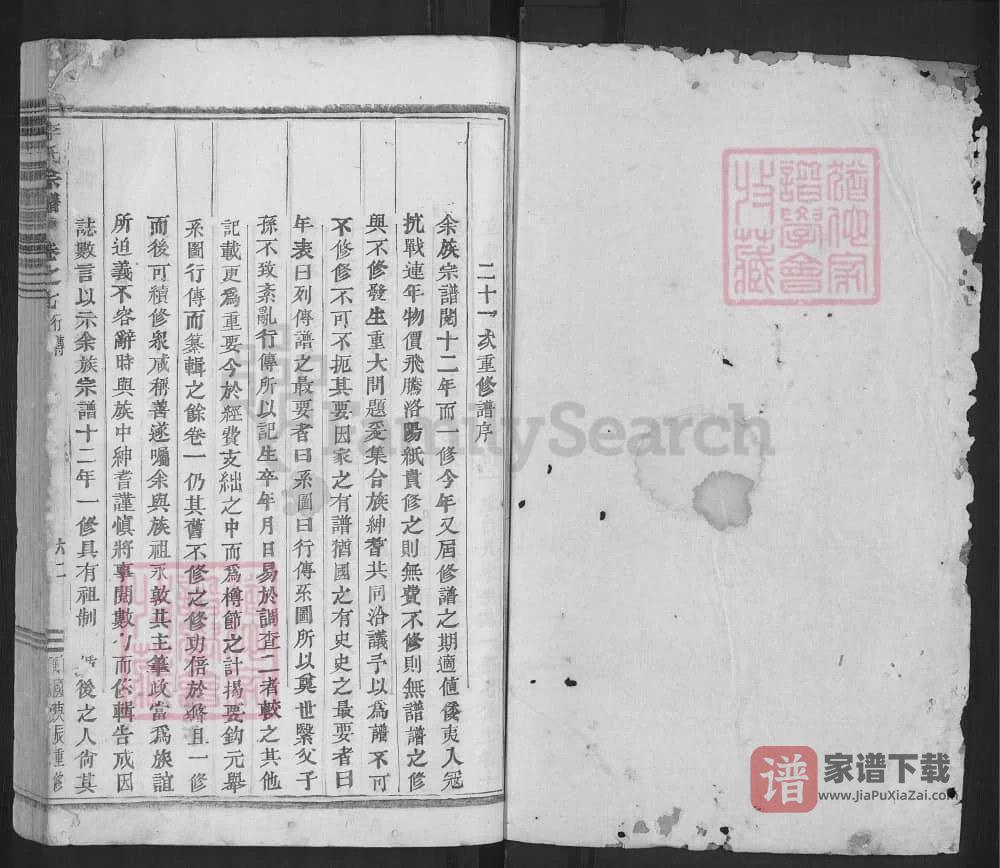 二十一次重修譜序
余族宗譜閱十二年而一修今年又屆修譜之期適值倭夷入寇
抗戰連年物價飛騰洛陽紙貴修之則無費不修則無譜譜之修
與不修發生重大問題爰集合族紳耆共同洽議予以為譜不可
不修修不可不扼其要因家之有譜猶國之有史史之最要者曰
年表曰列傳譜之最要者曰系圖曰行傳系圖所以奠世繫父子
孫不致紊亂行傳所以記生卒年月日易於調查二者較之其他
記載更為重要今於經費支絀之中而為樽節之計揚要鈎元舉
系圖行傳而纂輯之餘卷一仍其舊不修之修功倍於修且一修
而後可續修眾咸稱善遂囑余與族祖永敦其主筆政當為族誼
所迫義不容辭時與族中紳耆謹慎將事閱數 而 輯告成因
誌數言以示余族宗譜十二年一修具有祖制 後之人尙其
氏宗譜 卷之 行傳 六二 重修
猶他家
譜學會
收藏
FamilySearch
譜
家谱下载
www.JiaPuXiaZai.com